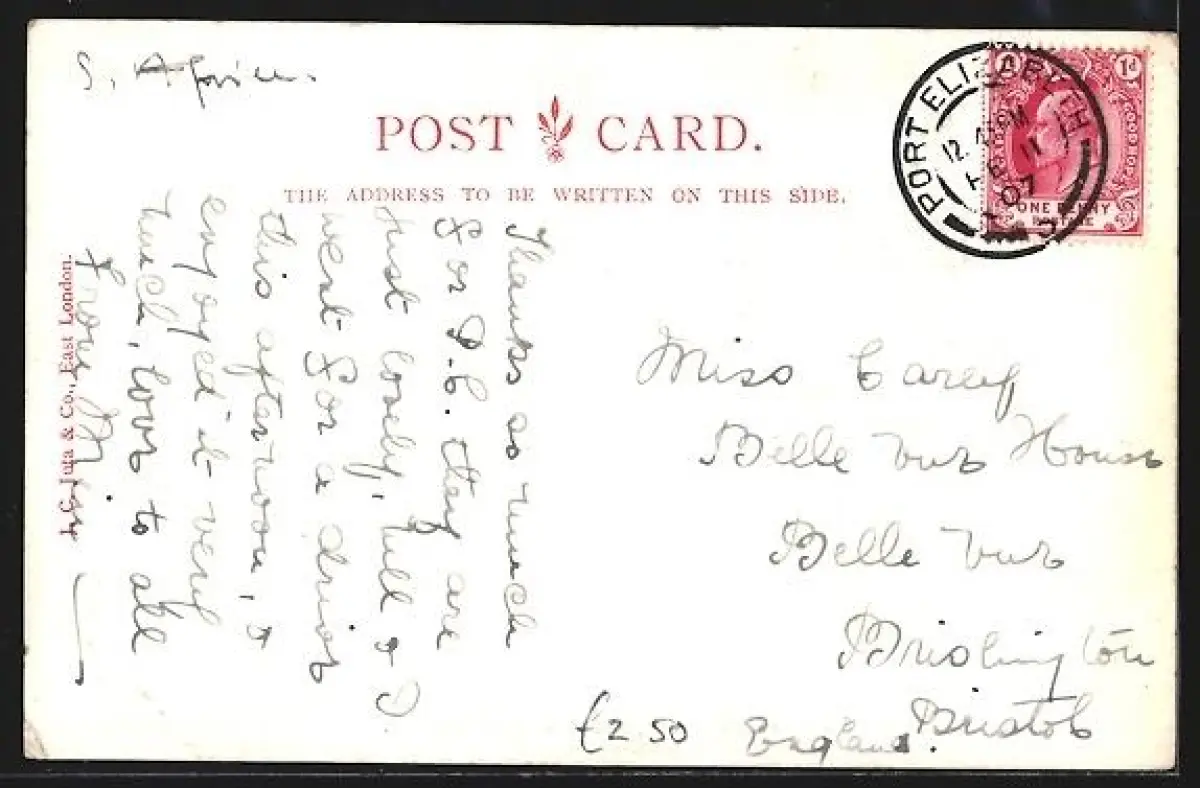 S. Africa.
POST CARD.
THE ADDRESS TO BE WRITTEN ON THIS SIDE.
PORT ELIZABETH
12.
FE 11
07
1d
ONE PENNY
POSTAGE
Thanks so much
for P.C. they are
just lovely, Nell & I
went for a drive
this afternoon, &
enjoyed it very
much, love to all
from
J.C. Juta & Co., East London.
Miss Carey
Belle Vue House
Belle Vue
Brislington
Bristol
England.
£2.50